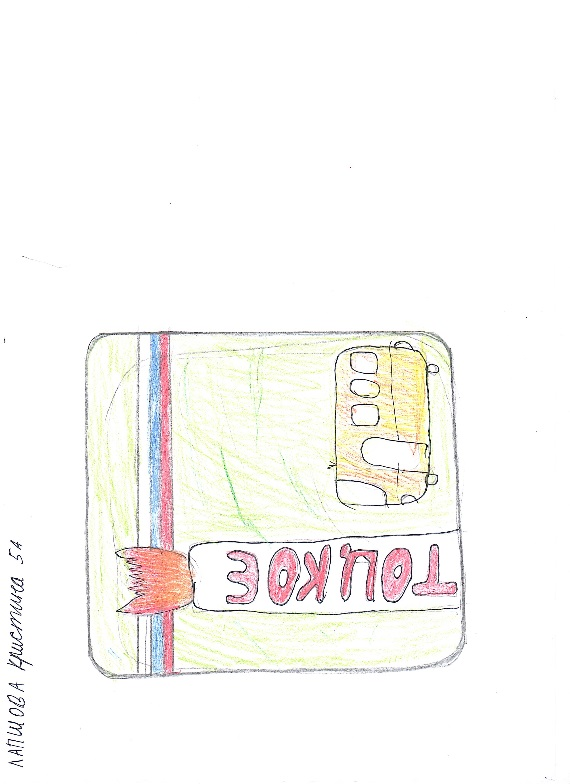 ТОЦКОЕ
ЛАПШОВА Кристина 5А